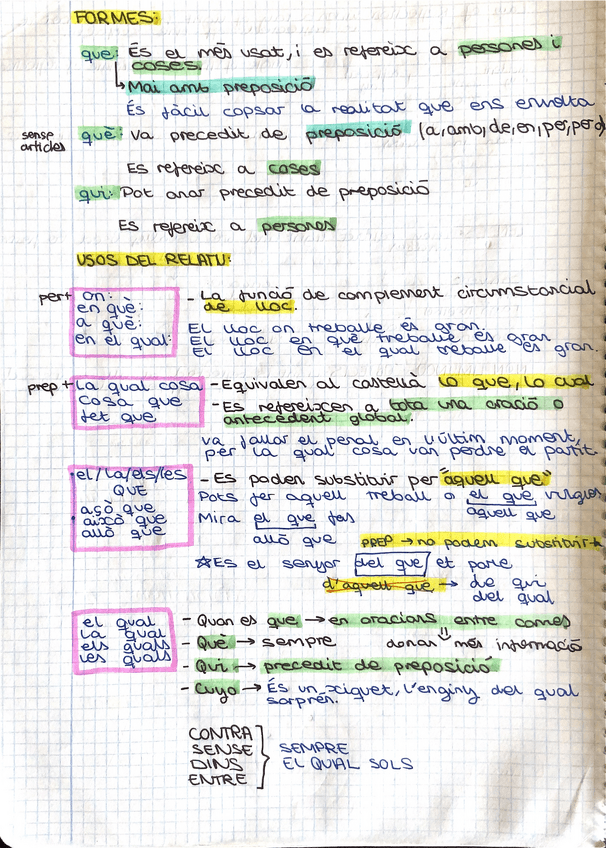 FORMES:
que: És el més usat, i es refereix a persones i
coses.
↳ Mai amb preposició
És fàcil copsar la realitat que ens envolta
sense articles què: va precedit de preposició (a, amb, de, en, per, per a)
Es refereix a coses
qui: Pot anar precedit de preposició
Es refereix a persones
USOS DEL RELATIU:
per+ on: - La funció de complement circumstancial
en què: de lloc.
a què: El lloc on treballe és gran.
en el qual: El lloc en què treballe és gran
El lloc en el qual treballe és gran.
prep + la qual cosa - Equivalen al castellà lo que, lo cual
cosa que - Es refereixen a tota una oració o
fet que antecedent global.
va fallar el penal en l'últim moment,
per la qual cosa van perdre el partit.
el/la/els/les - Es poden substituir per "aquell que"
QUE Pots fer aquell treball o el que vulgues
açò que aquell que
això que Mira el que fas
allò que allò que PREP → no podem substituir
☆ Es el senyor del que et parle
d'aquell que → de qui
del qual
el qual - Quan es que → en oracions entre comes
la qual - Què → sempre donar més informació
els quals - Qui → precedit de preposició
les quals - Cuyo → És un xiquet, l'enginy del qual
sorprén.
CONTRA
SENSE SEMPRE
DINS EL QUAL SOLS
ENTRE